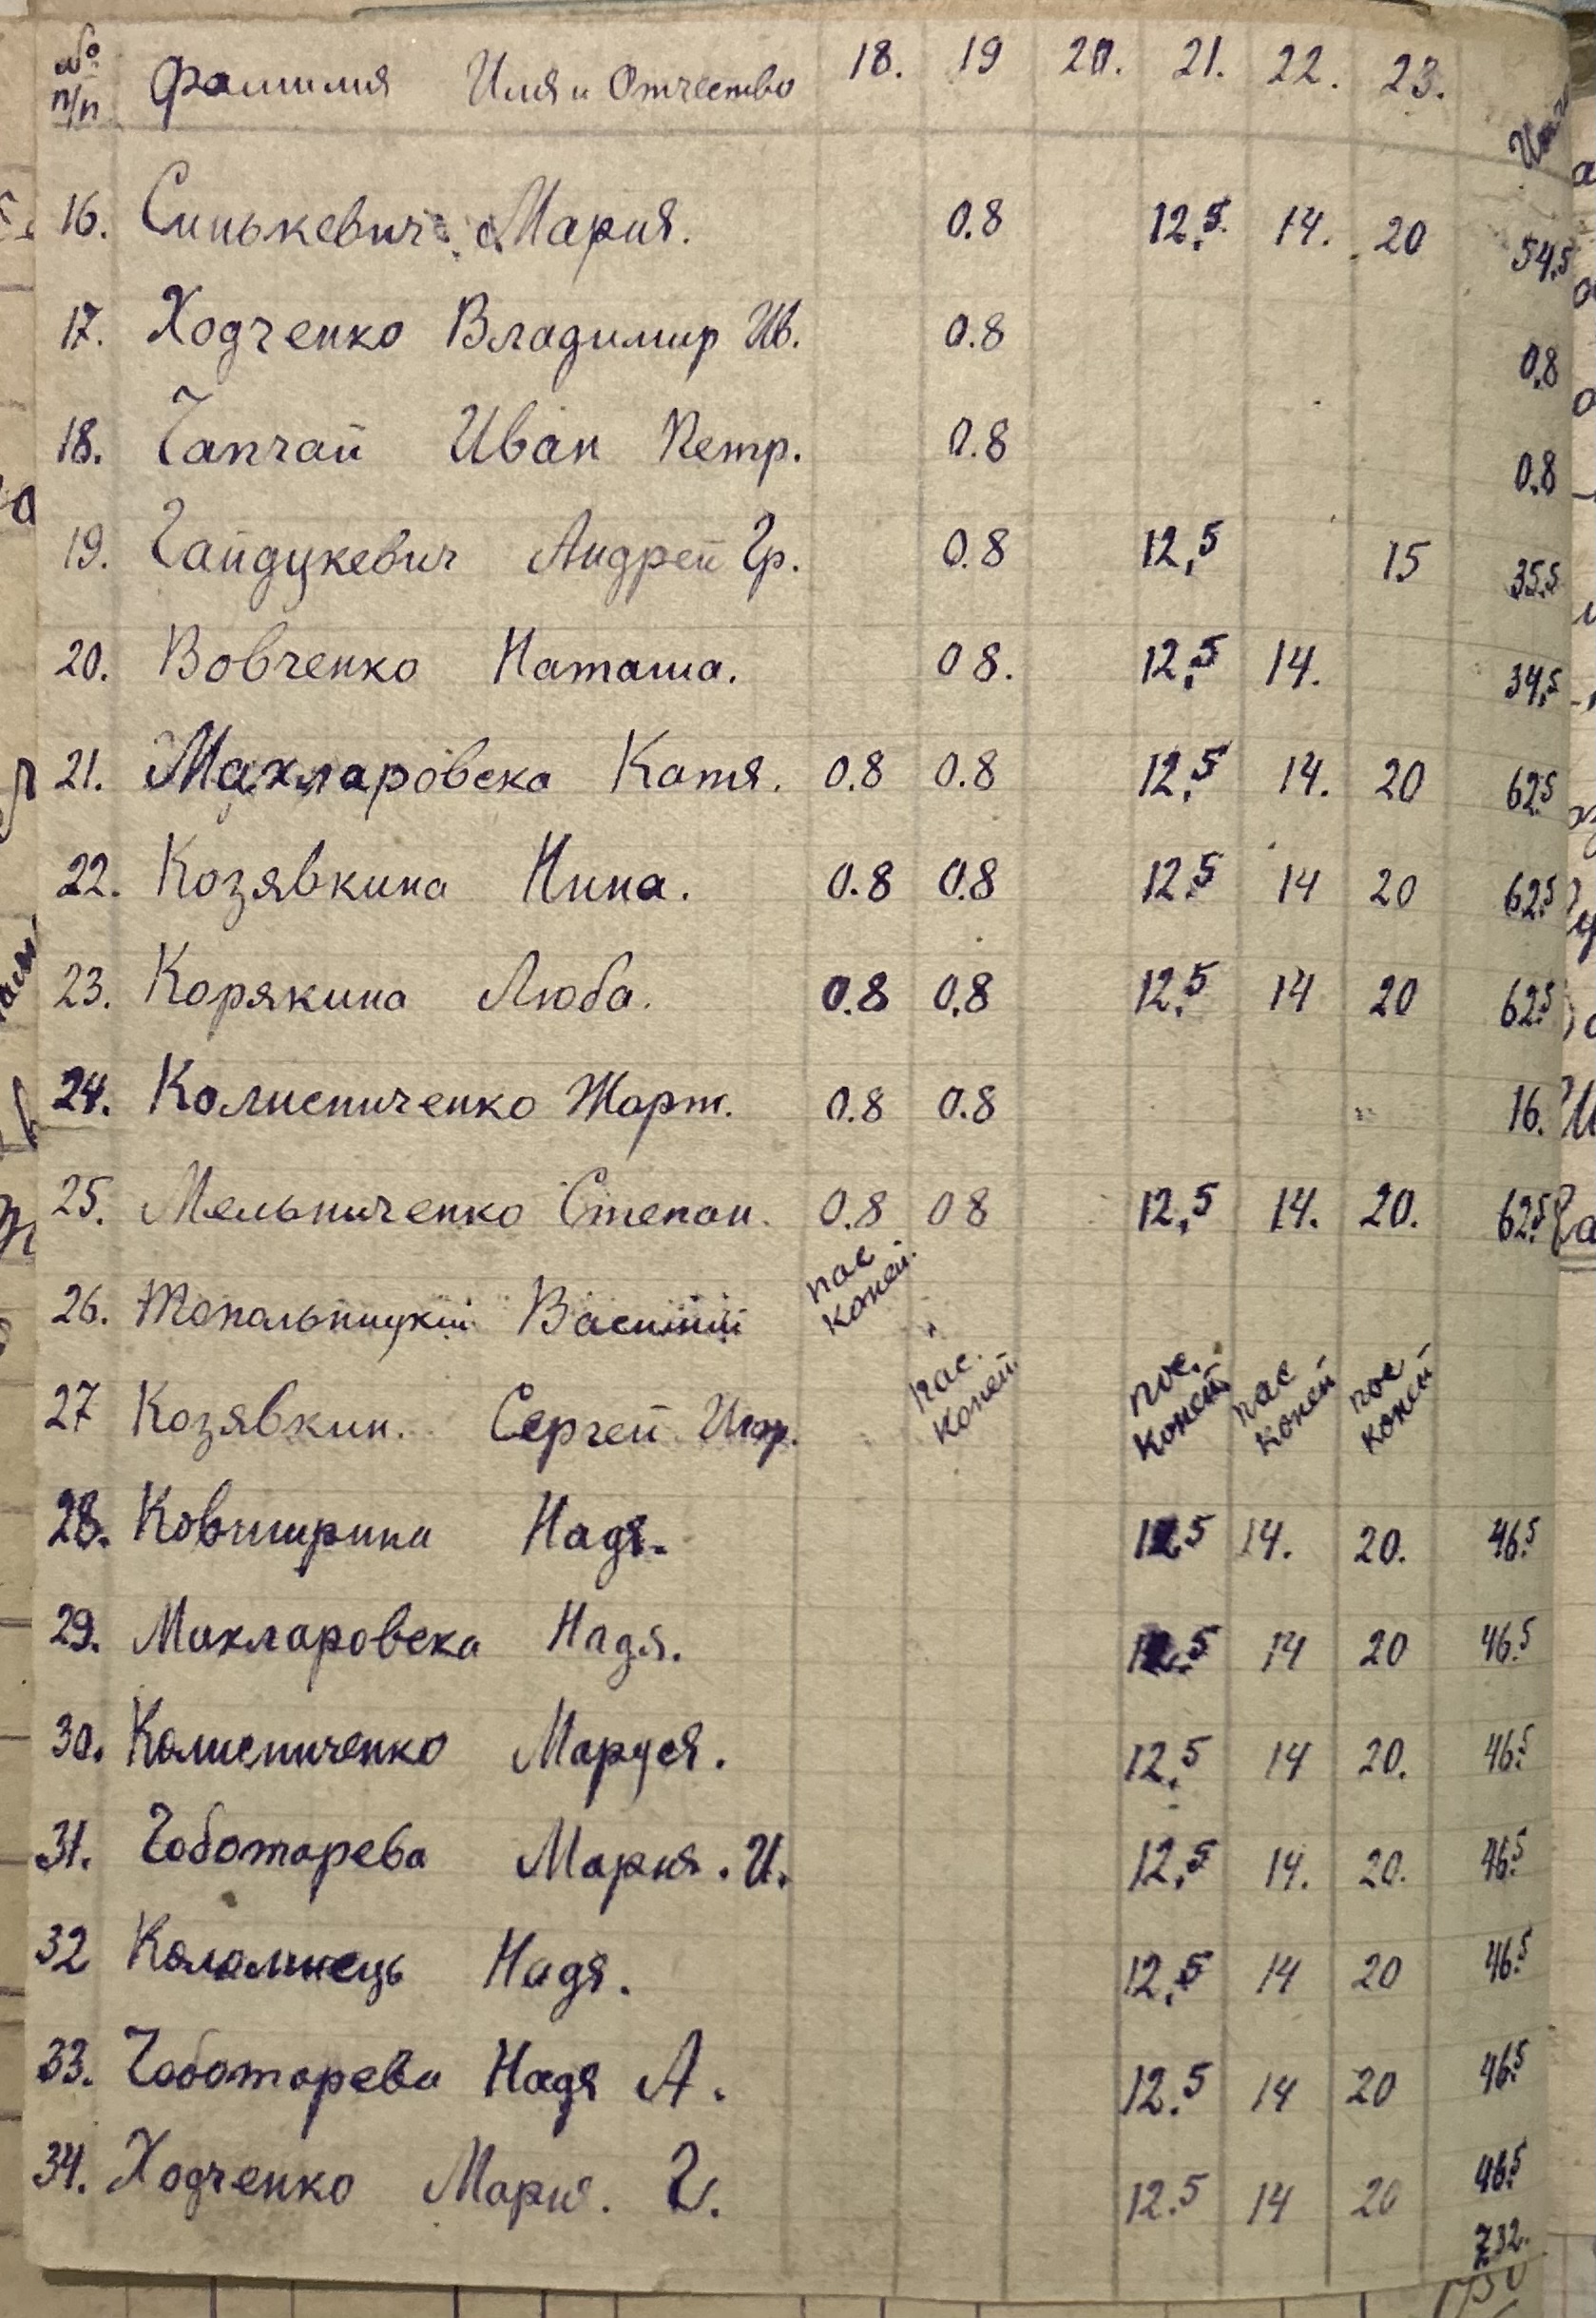 № п/п Фамилия Имя и Отчество 18. 19 20. 21. 22. 23.
16. Синькевич Мария. 0.8 12,5. 14. 20 54,5
17. Ходченко Владимир Ив. 0.8 0,8
18. Чапчай Иван Петр. 0.8 0.8
19. Гайдукевич Андрей Гр. 0.8 12,5 15 35,5
20. Вовченко Наташа. 08. 12,5 14. 34,5
21. Махларовска Катя. 0.8 0.8 12,5 14. 20 62,5
22. Козявкина Нина. 0.8 0.8 12.5 14 20 62,5
23. Корякина Люба. 0.8 0.8 12.5 14 20 62,5
24. Колисниченко Жорж. 0.8 0.8 16.
25. Мельниченко Степан. 0.8 08 12,5 14. 20. 62,5
26. Топальницкий Василий пас коней.
27 Козявкин. Сергей пас. коней пас. коней пас коней пас коней
28. Надя. 12.5 14. 20. 46.5
29. Махларовска Надя. 12.5 14 20 46.5
30. Колисниченко Маруся. 12,5 14 20. 46,5
31. Чоботарева Мария. И. 12,5 14. 20. 46,5
32 Коломиець Надя. 12,5 14 20 46,5
33. Чоботарева Надя А. 12.5 14 20 46,5
34. Ходченко Мария. Г. 12.5 14 20 46,5
732.